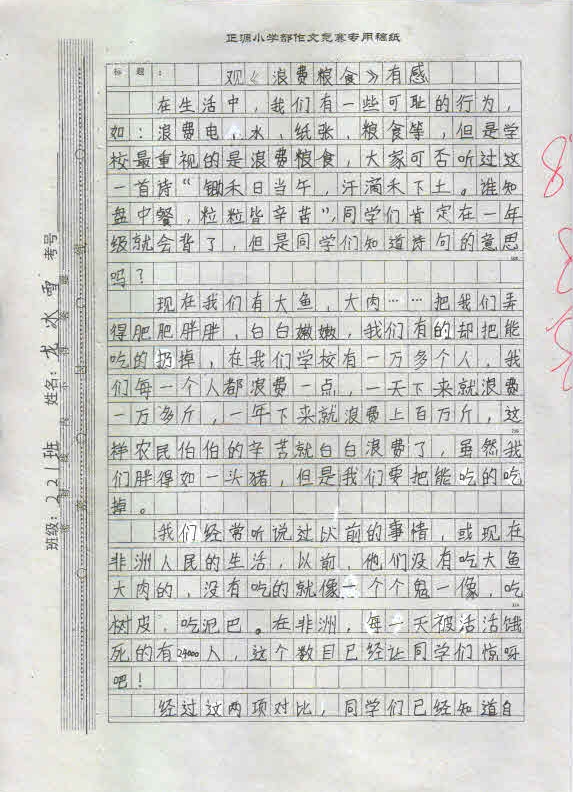 正源小学部作文竞赛专用稿纸
标题：观《浪费粮食》有感
在生活中，我们有一些可耻的行为，
如：浪费电，水，纸张，粮食等，但是学
校最重视的是浪费粮食，大家可否听过这
一首诗“锄禾日当午，汗滴禾下土。谁知
盘中餐，粒粒皆辛苦”，同学们肯定在一年
级就会背了，但是同学们知道诗句的意思
吗？
现在我们有大鱼，大肉……把我们弄
得肥肥胖胖，白白嫩嫩，我们有的却把能
吃的扔掉，在我们学校有一万多个人，我
们每一个人都浪费一点，一天下来就浪费
一万多斤，一年下来就浪费上百万斤，这
样农民伯伯的辛苦就白白浪费了，虽然我
们胖得如一头猪，但是我们要把能吃的吃
掉。
我们经常听说过以前的事情，或现在
非洲人民的生活，以前，他们没有吃大鱼
大肉的，没有吃的就像一个个鬼一像，吃
树皮，吃泥巴。在非洲，每一天被活活饿
死的有24000人，这个数目已经让同学们惊呀
吧！
经过这两项对比，同学们已经知道自
班级：221班 姓名：尤冰雪 考号